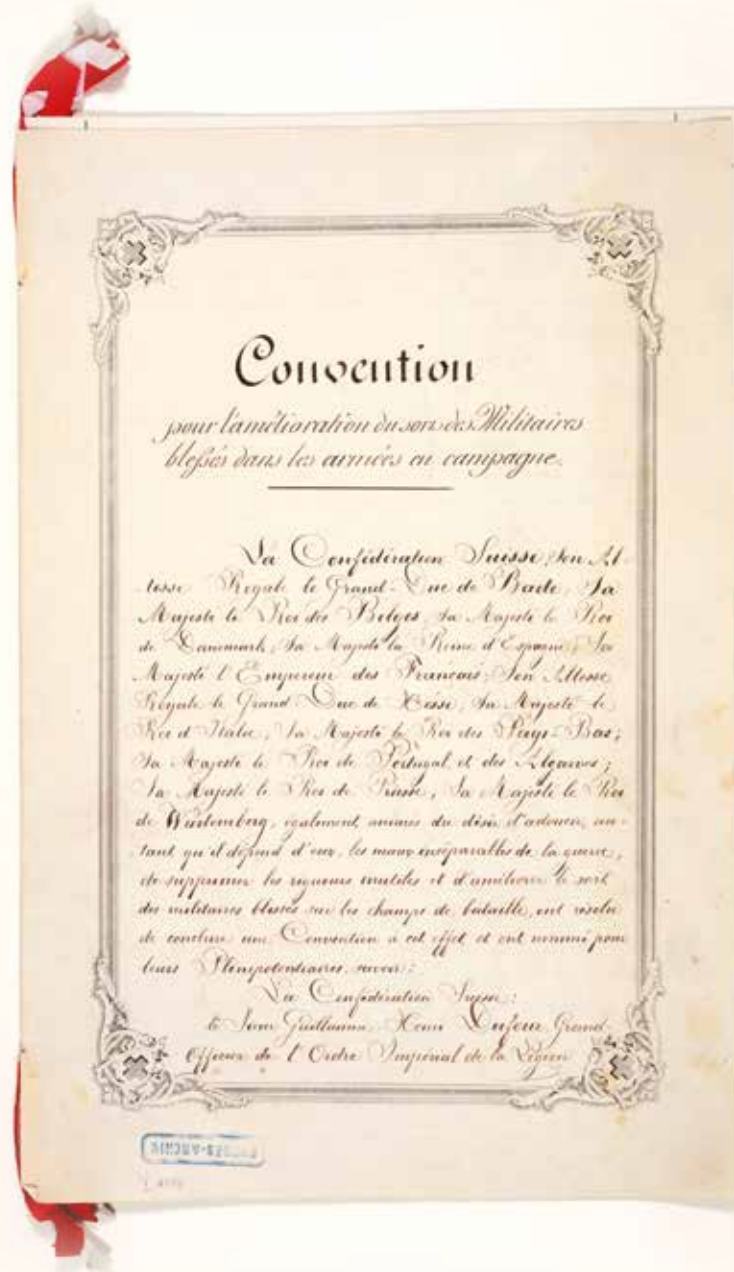 Convention
pour l'amélioration du sort des Militaires
blessés dans les armées en campagne.
La Confédération Suisse; Son Al-
tesse Royale le Grand-Duc de Bade; Sa
Majesté le Roi des Belges; Sa Majesté le Roi
de Danemark; Sa Majesté la Reine d'Espagne; Sa
Majesté l'Empereur des Français; Son Altesse
Royale le Grand Duc de Hesse; Sa Majesté le
Roi d'Italie; Sa Majesté le Roi des Pays-Bas;
Sa Majesté le Roi de Portugal et des Algarves;
Sa Majesté le Roi de Prusse; Sa Majesté le Roi
de Wurtemberg, également animés du désir d'adoucir, au-
tant qu'il dépend d'eux, les maux inséparables de la guerre,
de supprimer les rigueurs inutiles et d'améliorer le sort
des militaires blessés sur les champs de bataille, ont résolu
de conclure une Convention à cet effet et ont nommé pour
leurs Plénipotentiaires, savoir:
La Confédération Suisse:
le Sieur Guillaume Henri Dufour, Grand
Officier de l'Ordre Impérial de la Légion